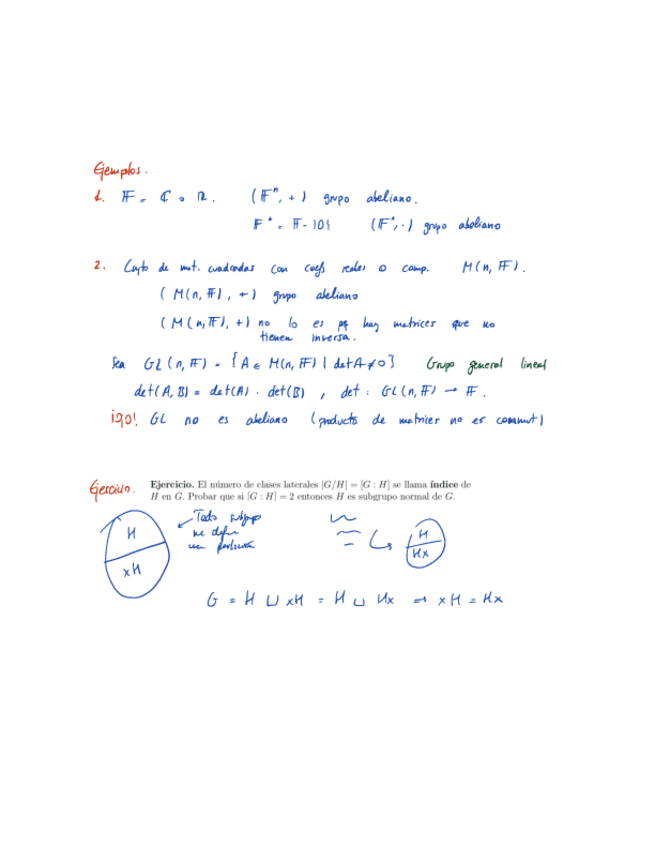 Ejemplos.
1. 𝔽 = ℂ o ℝ. (𝔽ⁿ, +) grupo abeliano.
𝔽* = 𝔽 - {0} (𝔽*, ·) grupo abeliano
2. Cnjto de mat. cuadradas con coefs reales o comp. M(n, 𝔽).
(M(n, 𝔽), +) grupo abeliano
(M(n, 𝔽), +) no lo es pq hay matrices que no
tienen inversa.
Sea GL(n, 𝔽) = {A ∈ M(n, 𝔽) | det A ≠ 0} Grupo general lineal
det(A, B) = det(A) · det(B) , det : GL(n, 𝔽) → 𝔽.
¡Ojo! GL no es abeliano (producto de matrices no es conmut)
Ejercicio. Ejercicio. El número de clases laterales |G/H| = [G : H] se llama índice de
H en G. Probar que si [G : H] = 2 entonces H es subgrupo normal de G.
Todo subgrupo
me define
una
H
xH
H
Hx
G = H ⊔ xH = H ⊔ Hx ⇒ xH = Hx